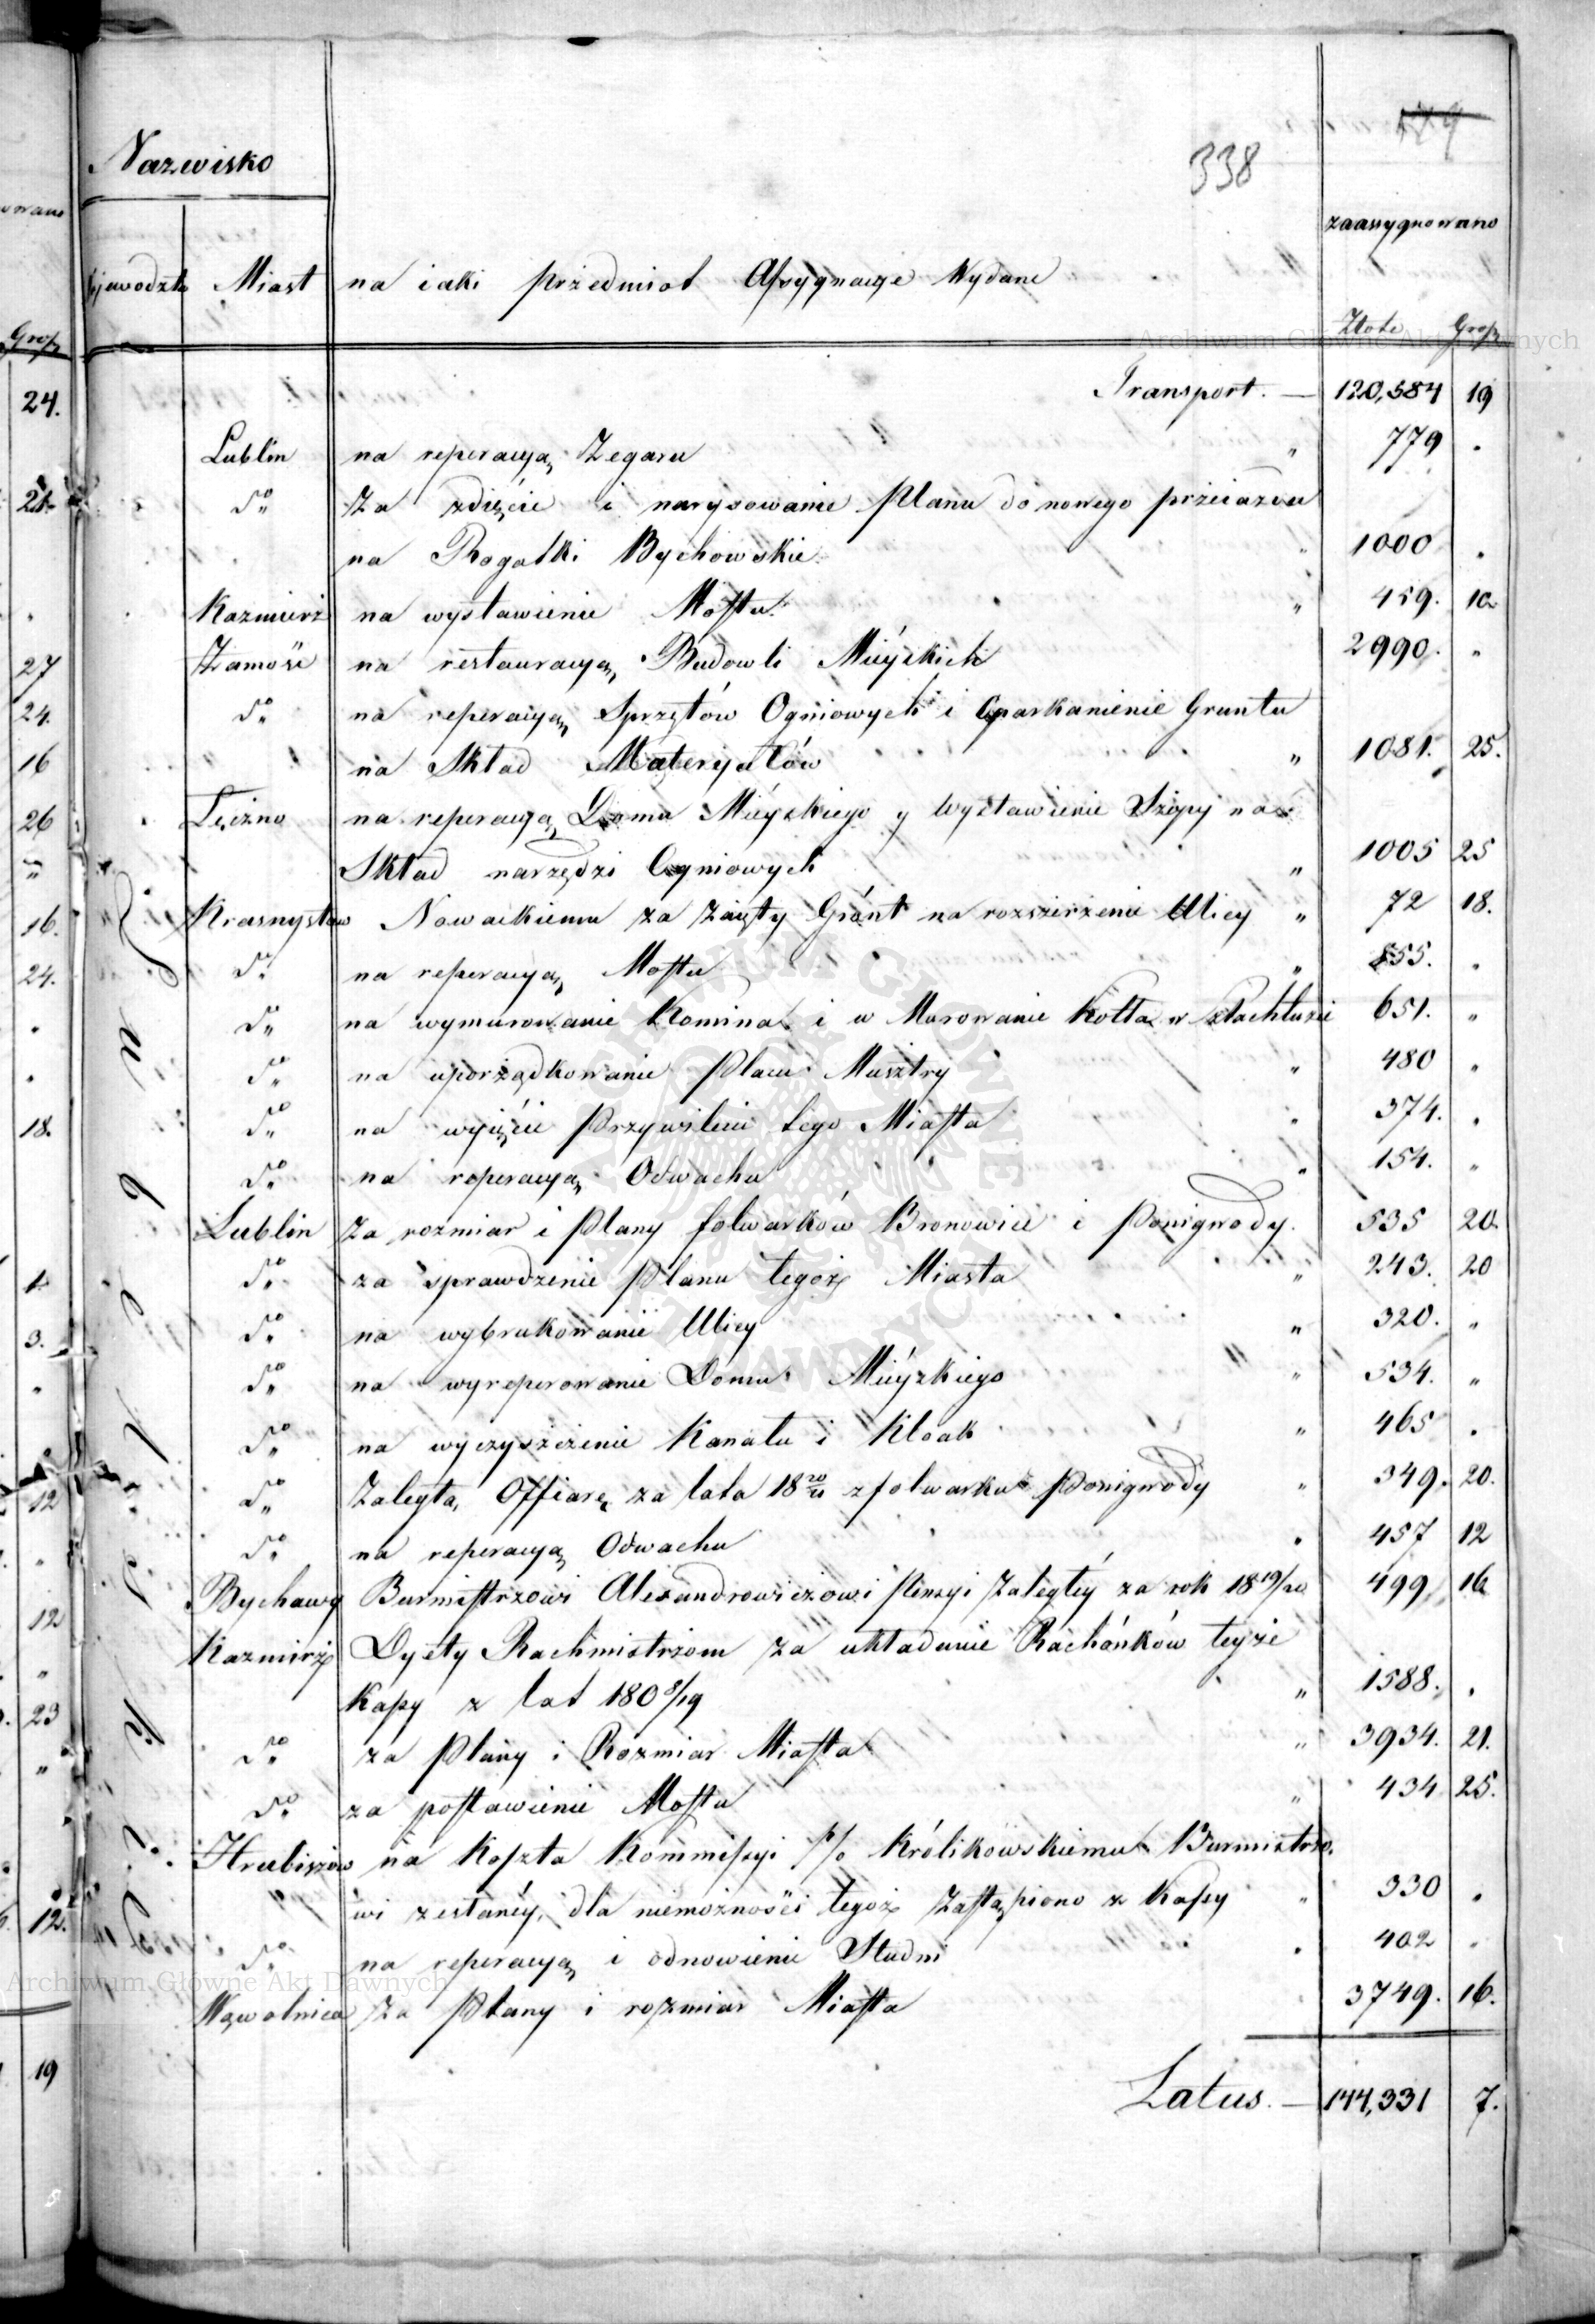 179
338
Nazwisko
zaassygnowano
Wojewodztw Miast na iaki przedmiot Assygnacye Wydane
Złote Grosz
Transport. — 120,584 19
Lublin na reperacyą Zegaru " 779 "
do Za zdięcie i narysowanie Planu do nowego przeiazdu
na Rogatki Bychowskie " 1000 "
Kazmierz na wystawienie Mostu " 459. 10
Zamość na restauracyą Budowli Mieyskich 2990. "
do na reperacyą Sprzętów Ogniowych i Oparkanienie Gruntu
na Skład Materyałów " 1081. 25.
Łęczno na reperacyą Domu Mieyskiego y Wystawienie Szopy na
Skład narzędzi Ogniowych " 1005 25
Krasnystaw Nowackiemu za Zaięty Grónt na rozszerzenie Ulicy " 72 18.
do na reperacyą Mostu " 855. "
do na wymurowanie Komina i w Murowanie Kotła w Szlachtuzie 651. "
do na uporządkowanie Placu Musztry " 480 "
do na wyięcie Przywileiu tego Miasta " 374. "
do na reperacyą Odwachu " 154. "
Lublin Za rozmiar i Plany folwarków Bronowice i Ponigwody. 535 20
do za sprawdzenie Planu tegoż Miasta " 243. 20
do na wybrukowanie Ulicy " 320. "
do na wyreperowanie Domu Mieyskiego " 534. "
do na wyczyszczenie Kanału i Kloak " 465 "
do Zaległą Offiarę za lata 18 20/21 z folwarku Ponigwody " 349. 20.
do na reperacyą Odwachu " 457 12
Bychawy Burmistrzowi Alexandrowiczowi Pensyi Zaległéy za rok 18 19/20 499 16
Kazmirz Dyety Rachmistrzom za układanie Rachónków teyże
Kassy z lat 180 8/19 " 1588. "
do za Plany i Rozmiar Miasta " 3934. 21.
do za postawienie Mostu " 434 25.
Hrubiszów na Koszta Kommissyi p/o Królikowskiemu Burmistrzo,
wi zesłanéy, dla niemożności tegoż Zastąpiono z Kassy " 330 "
do na reperacyą i odnowienie Studni " 402 "
Wąwolnica Za Plany i rozmiar Miasta 3749. 16.
Latus. — 144,331 7.
Lubelskie
Archiwum Główne Akt Dawnych